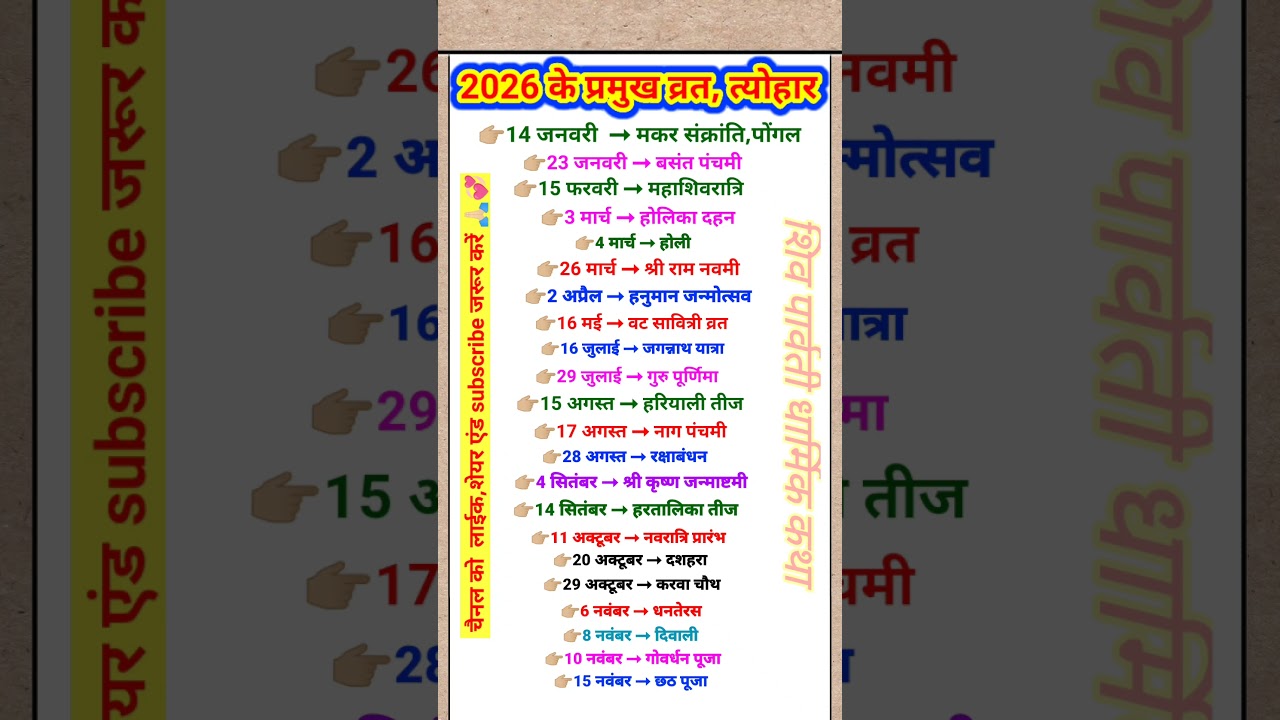 2026 के प्रमुख व्रत, त्योहार
👉🏼14 जनवरी → मकर संक्रांति,पोंगल
👉🏼23 जनवरी → बसंत पंचमी
👉🏼15 फरवरी → महाशिवरात्रि
👉🏼3 मार्च → होलिका दहन
👉🏼4 मार्च → होली
👉🏼26 मार्च → श्री राम नवमी
👉🏼2 अप्रैल → हनुमान जन्मोत्सव
👉🏼16 मई → वट सावित्री व्रत
👉🏼16 जुलाई → जगन्नाथ यात्रा
👉🏼29 जुलाई → गुरु पूर्णिमा
👉🏼15 अगस्त → हरियाली तीज
👉🏼17 अगस्त → नाग पंचमी
👉🏼28 अगस्त → रक्षाबंधन
👉🏼4 सितंबर → श्री कृष्ण जन्माष्टमी
👉🏼14 सितंबर → हरतालिका तीज
👉🏼11 अक्टूबर → नवरात्रि प्रारंभ
👉🏼20 अक्टूबर → दशहरा
👉🏼29 अक्टूबर → करवा चौथ
👉🏼6 नवंबर → धनतेरस
👉🏼8 नवंबर → दिवाली
👉🏼10 नवंबर → गोवर्धन पूजा
👉🏼15 नवंबर → छठ पूजा
चैनल को लाईक,शेयर एंड subscribe जरूर करें 🙏💞
शिव पार्वती धार्मिक कथा